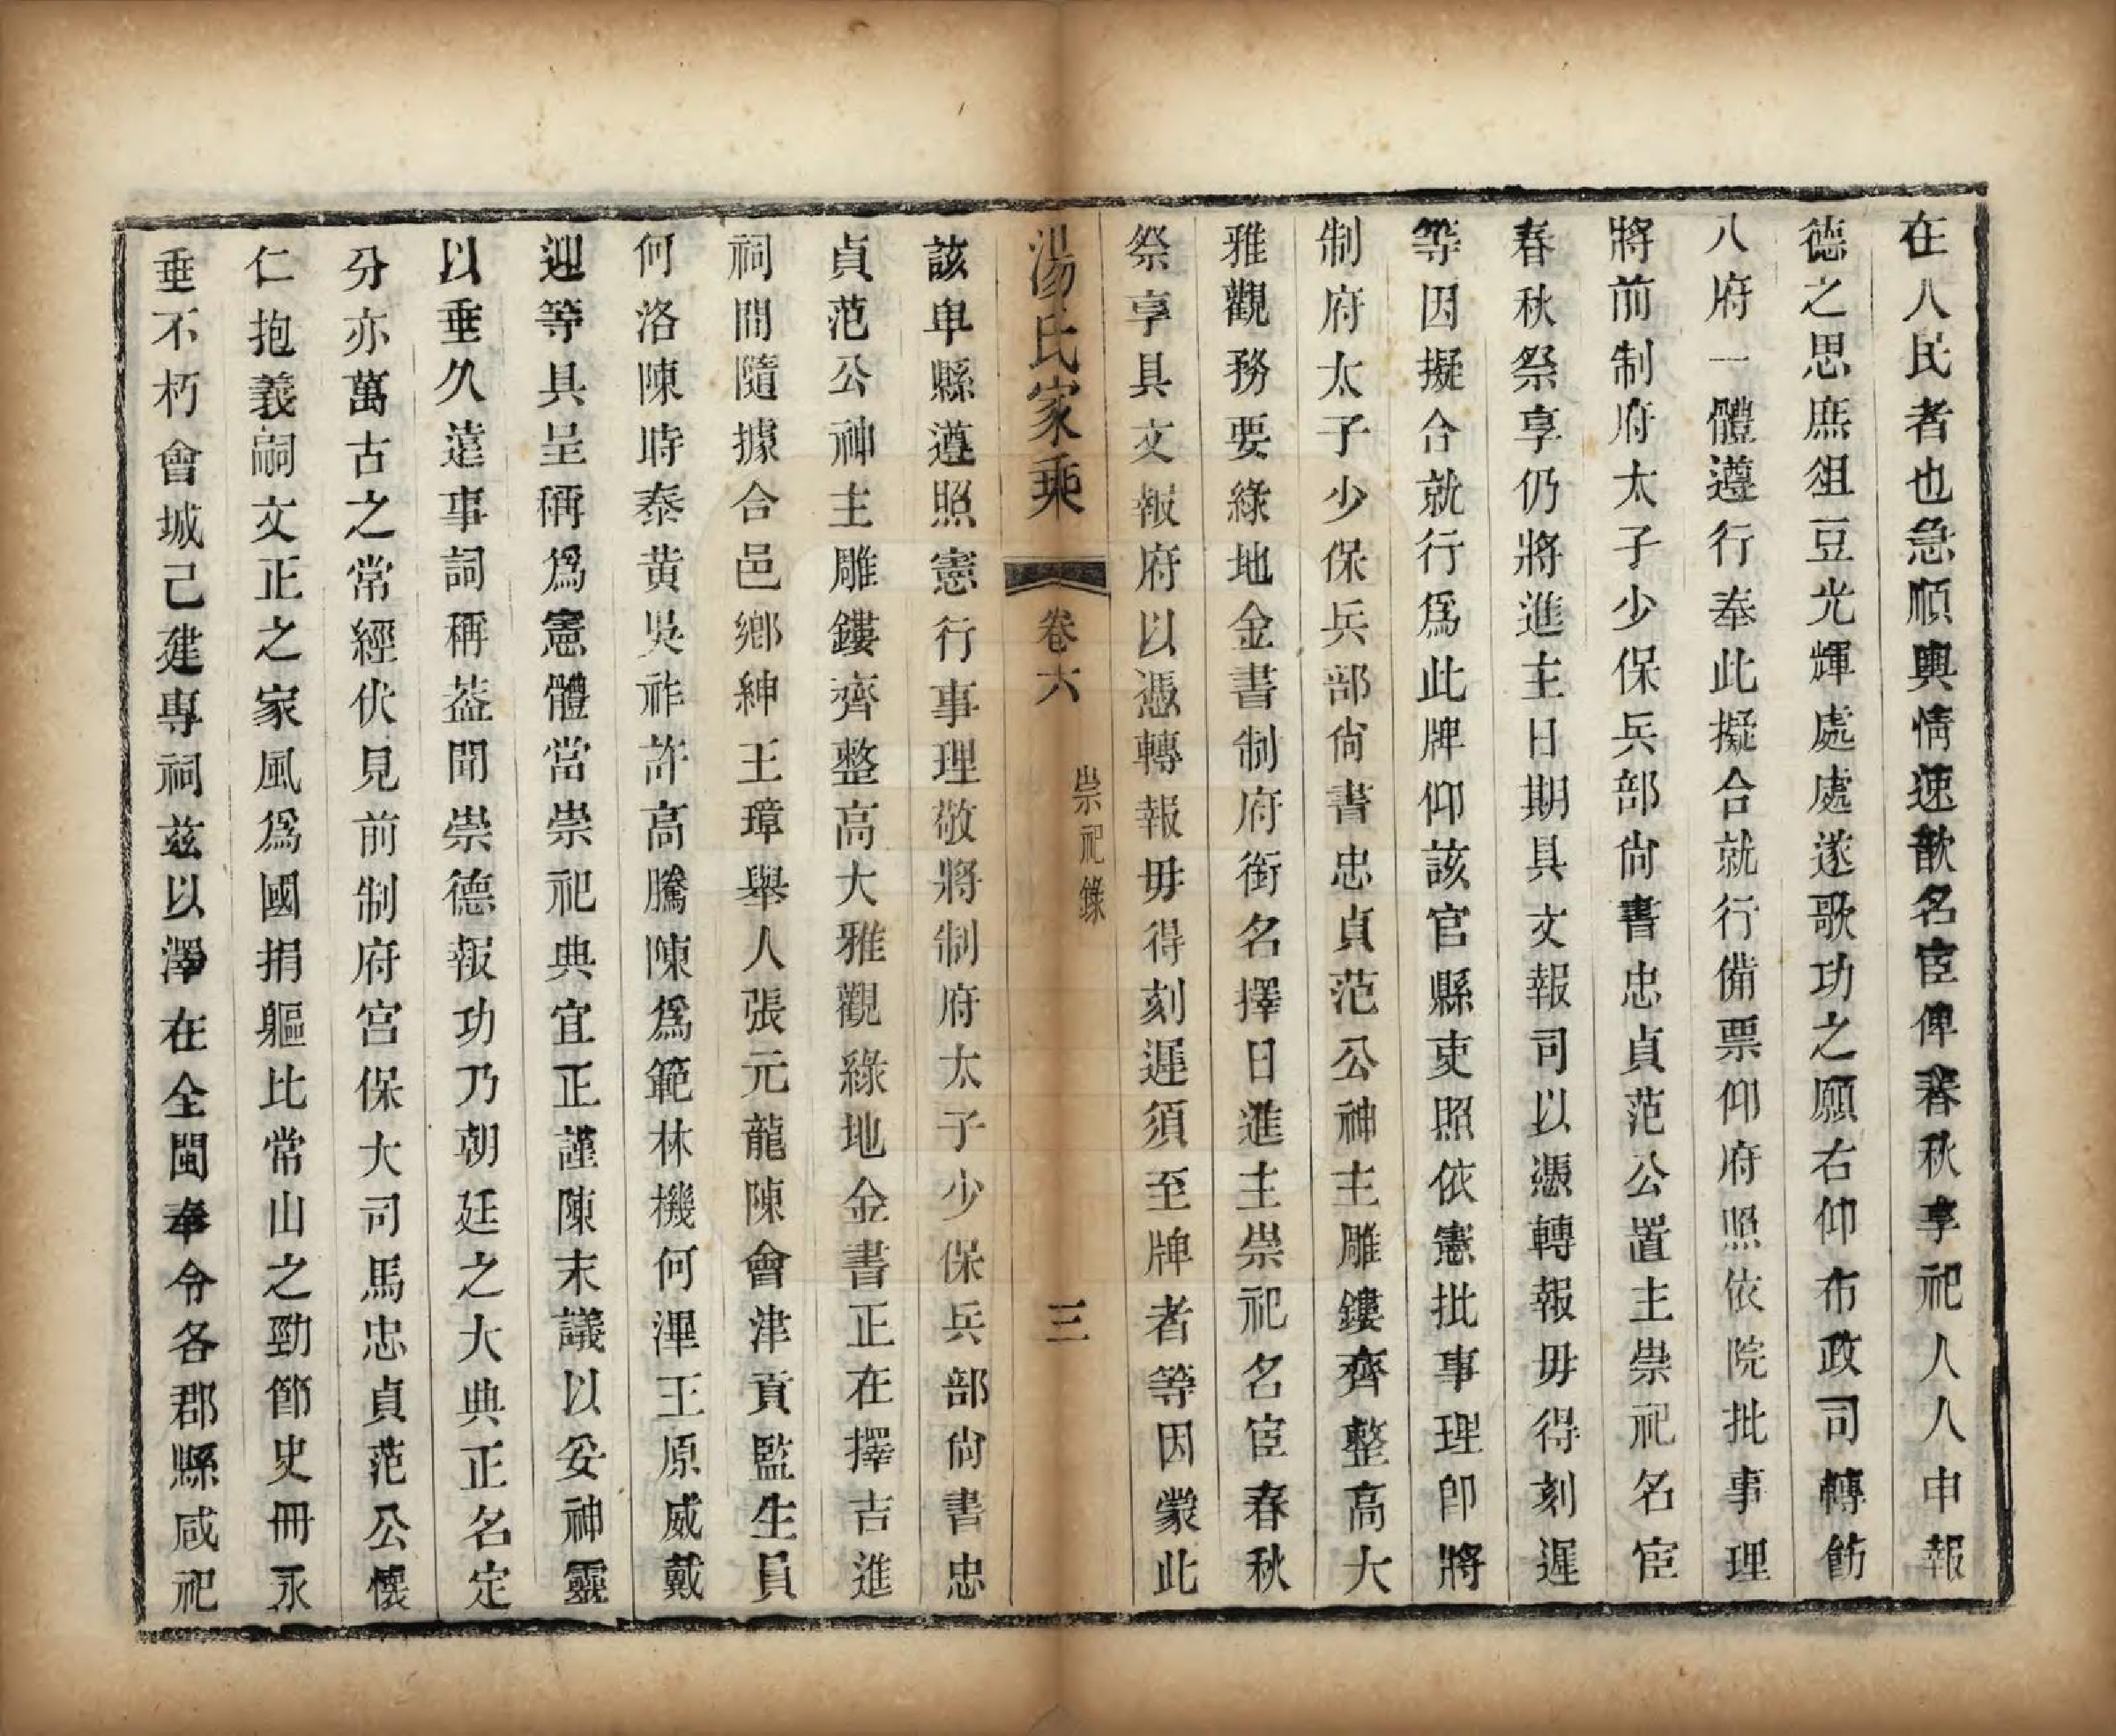 在人民者也急順輿情速歆名宦俾春秋享祀人人申報
德之思庶俎豆光輝處處遂歌功之願右仰布政司轉飭
八府一體遵行奉此擬合就行備票仰府照依院批事理
將前制府太子少保兵部尚書忠貞范公置主崇祀名宦
春秋祭享仍將進主日期具文報司以憑轉報毋得刻遲
等因擬合就行爲此牌仰該官縣吏照依憲批事理卽將
制府太子少保兵部尚書忠貞范公神主雕鏤齊整高大
雅觀務要綠地金書制府銜名擇日進主崇祀名宦春秋
祭享具文報府以憑轉報毋得刻遲須至牌者等因蒙此
湯氏家乘 卷六 崇祀錄 三
該卑縣遵照憲行事理敬將制府太子少保兵部尚書忠
貞范公神主雕鏤齊整高大雅觀綠地金書正在擇吉進
祠間隨據合邑鄉紳王璋舉人張元龍陳會津貢監生員
何洛陳時泰黄吳祚許高騰陳爲範林機何潭王原威戴
迎等具呈稱爲憲體當崇祀典宜正謹陳末議以妥神靈
以垂久遠事詞稱葢聞崇德報功乃朝廷之大典正名定
分亦萬古之常經伏見前制府宫保大司馬忠貞范公懷
仁抱義嗣文正之家風爲國捐軀比常山之勁節史冊永
垂不朽會城己建專祠兹以澤在全閩奉令各郡縣咸祀